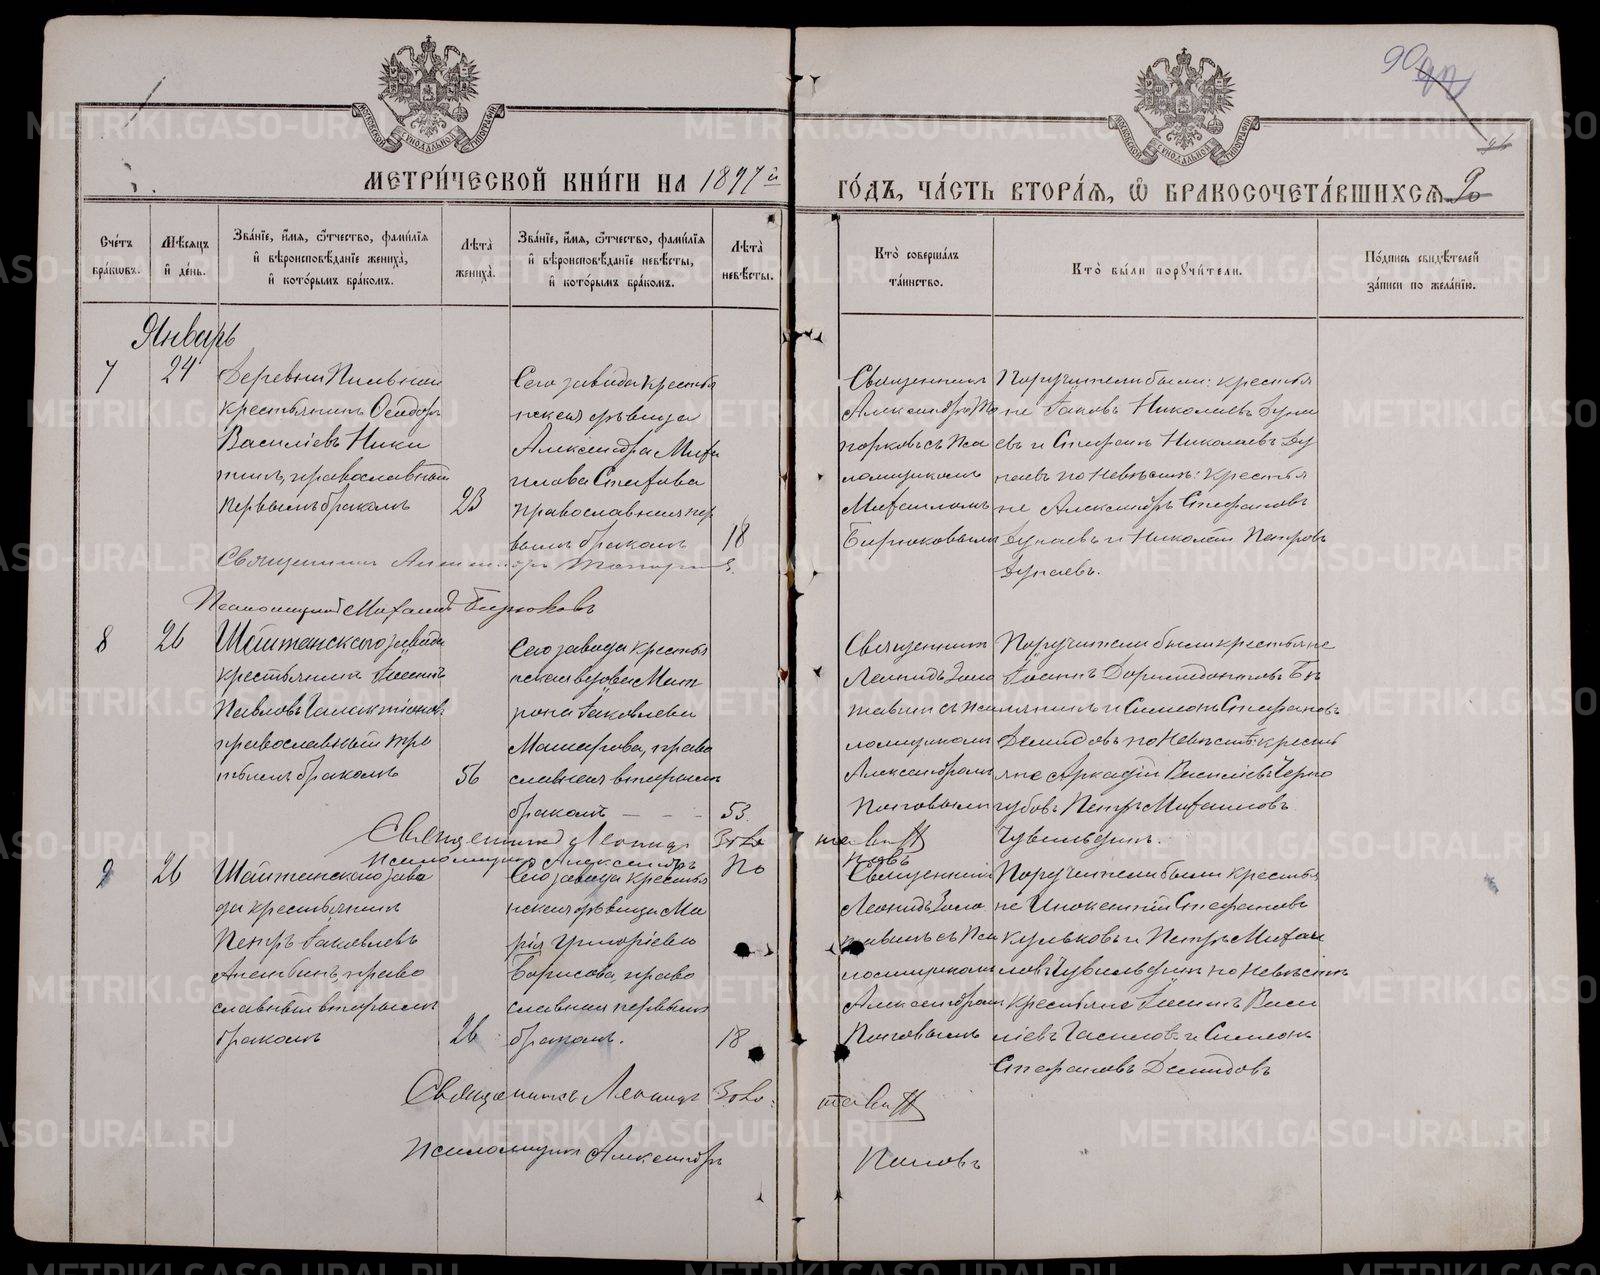 МЕТРИ́ЧЕСКОЙ КНИ́ГИ НА 1897 й
ГО́ДЪ, ЧА́СТЬ ВТОРА́Я, Ѽ БРАКОСОЧЕТА́ВШИХСЯ
90
Сче́тъ бра́ковъ.
Мѣ́сяцъ и́ де́нь.
Зва́нїе, и́мя, ѻ́тчество, фами́лїя и́ вѣроисповѣ́данїе жениха̀, и́ кото́рымъ бра́комъ.
Лѣта̀ жениха̀.
Зва́нїе, и́мя, ѻ́тчество, фами́лїя и́ вѣроисповѣ́данїе невѣ́сты, и́ кото́рымъ бра́комъ.
Лѣта̀ невѣ́сты.
Кто̀ соверша́лъ та́инство.
Кто̀ бы́ли порꙋчи́тели.
По́дпись свидѣ́телей за́писи по жела́нїю.
Январь
7
24
Деревни Пильной
крестьянинъ Ѳеодоръ
Василіевъ Ники
тинъ, православный
первымъ бракомъ
23
Сего завода крестья
нская дѣвица
Александра Миха
илова
православная пер
вымъ бракомъ
18
Священникъ
Александръ То
порковъ съ Пса
ломщикомъ
Михаиломъ
Бирюковымъ
Поручители были: крестья
не Іаковъ Николаевъ Дуна
евъ и Стефанъ Николаевъ Ду
наевъ по Невѣстѣ: крестья
не Александръ Стефановъ
Дунаевъ и Николай Петровъ
Дунаевъ.
Священникъ Александръ Топорковъ.
Псаломщикъ Михаилъ Бирюковъ
8
26
Шайтанскаго завода
крестьянинъ Іоаннъ
Павловъ Галактіоновъ
православный тре
тьимъ бракомъ
56
Сего завода крестья
нская вдова Мат
рона Іаковлева
Машарова, право
славная вторымъ
бракомъ
53.
Священникъ
Леонидъ Золо
тавинъ съ Пса
ломщикомъ
Александромъ
Поповымъ
Поручители были крестьяне
Іоаннъ Доримедонтовъ Бѣ
лянинъ и Симеонъ Стефановъ
Демидовъ по Невѣстѣ: кресть
яне Аркадій Василіевъ Черно
губовъ Петръ Михаиловъ
Чувильдинъ.
Священникъ Леонидъ Золотавинъ
Псаломщикъ Александръ Поповъ
9
26
Шайтанскаго заво
да крестьянинъ
Петръ Іаковлевъ
право
славный вторымъ
бракомъ
26
Сего завода крестья
нская дѣвица Ма
рія Григоріева
Борисова, право
славная первымъ
бракомъ.
18
Священникъ
Леонидъ Золо
тавинъ съ Пса
ломщикомъ
Александромъ
Поповымъ
Поручители были крестья
не Инокентій Стефановъ
Кульковъ и Петръ Михаи
ловъ Чувильдинъ по Невѣстѣ
Крестьяне Іоаннъ Васи
ліевъ Гасиловъ и Симеонъ
Стефановъ Демидовъ
Священникъ Леонидъ Золотавинъ
Псаломщикъ Александръ Поповъ
METRIKI.GASO-URAL.RU